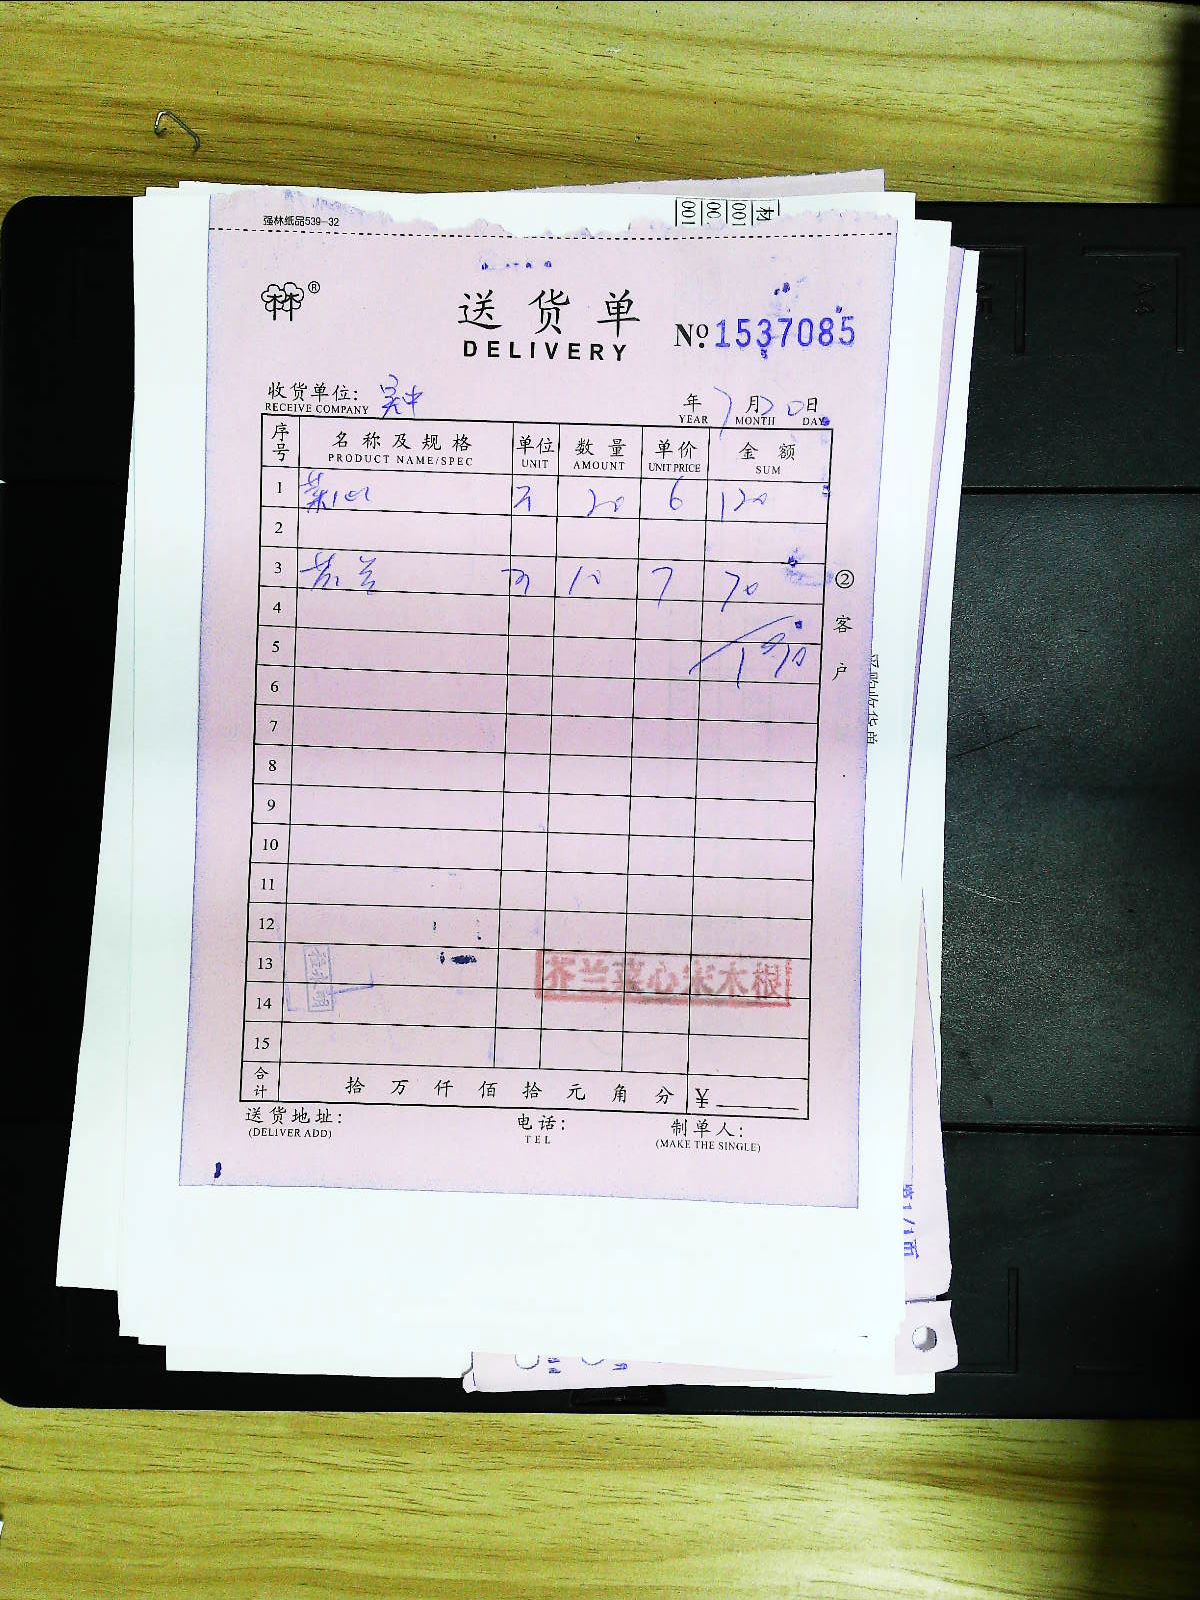 强林纸品539-32
送货单
DELIVERY
№ 1537085
收货单位: 吴中
RECEIVE COMPANY
年 7月20日
YEAR MONTH DAY
序号 名称及规格 单位 数量 单价 金额
PRODUCT NAME/SPEC UNIT AMOUNT UNIT PRICE SUM
1 菜心 斤 20 6 120
2
3 芥兰 斤 10 7 70
4
5 190
6
7
8
9
10
11
12
13
芥兰菜心宋木根
14
15
合计 拾万仟佰拾元角分 ¥
送货地址: 电话: 制单人:
(DELIVER ADD) TEL (MAKE THE SINGLE)
②客户
采购收货单
001
001